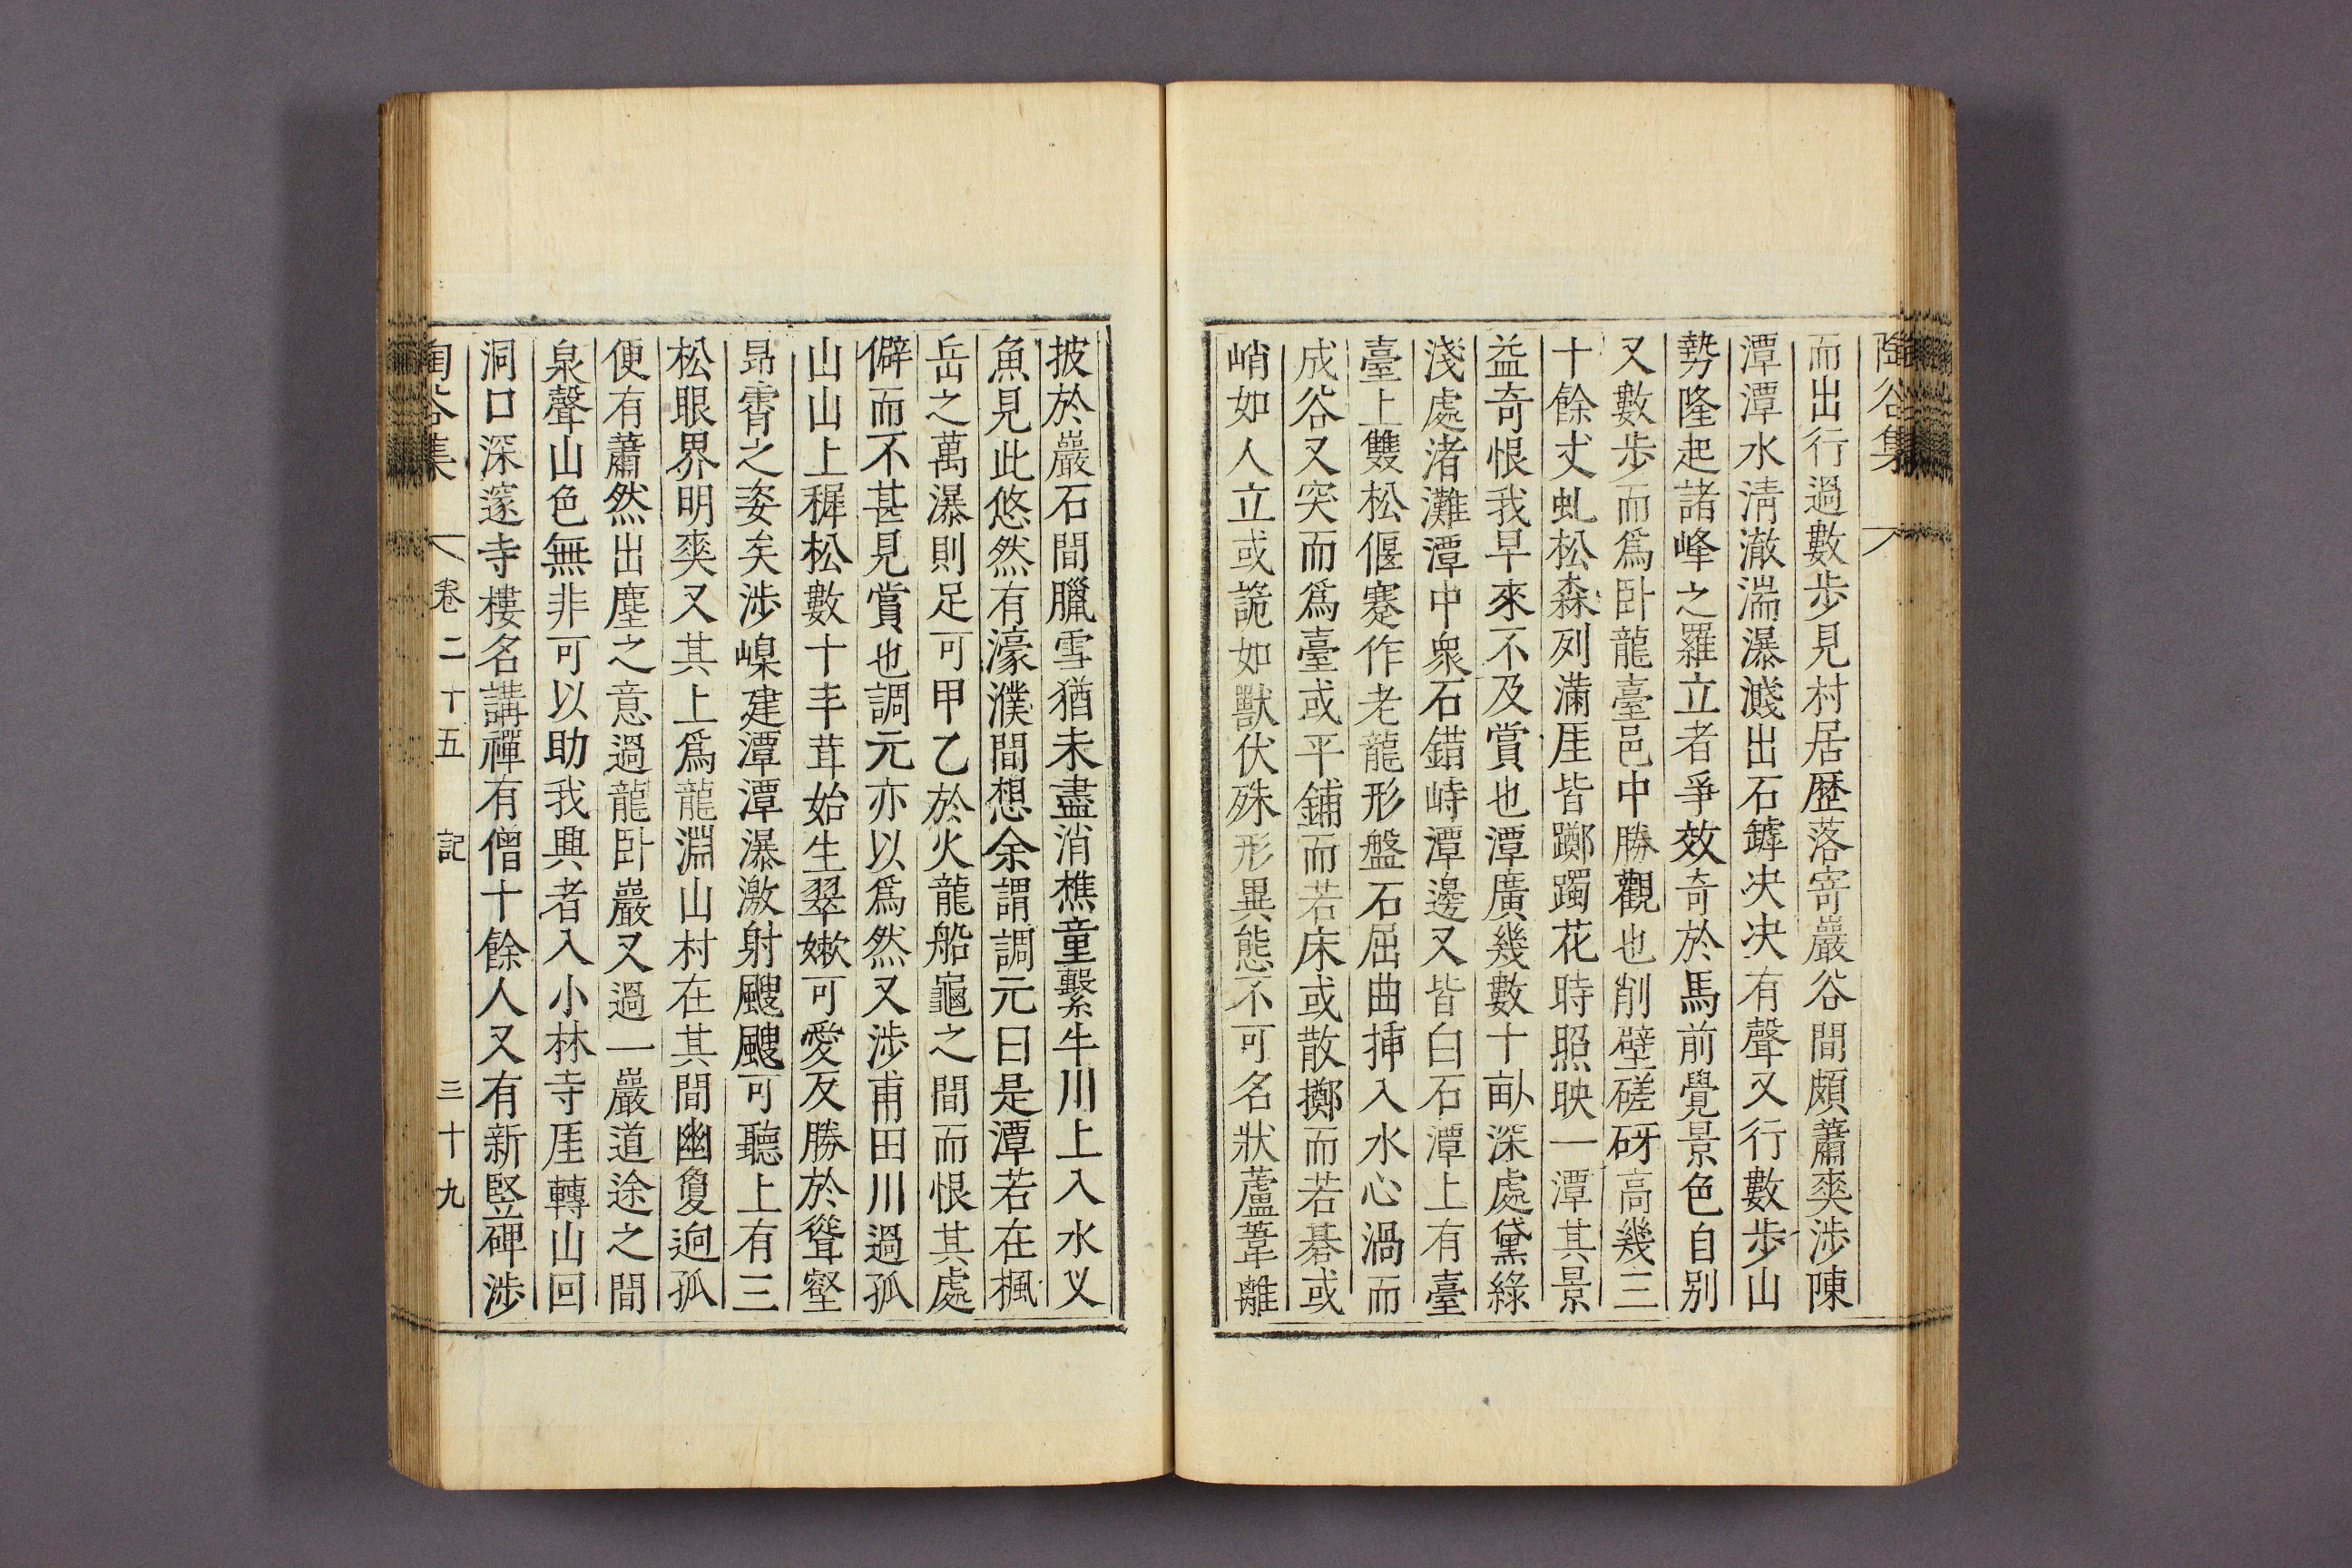 陶谷集
而出行過數步見村居歷落寄巖谷間頗蕭爽涉陳
潭潭水淸澈湍瀑濺出石罅决决有聲又行數步山
勢隆起諸峰之羅立者爭效奇於馬前覺景色自别
又數步而爲卧龍臺邑中勝觀也削壁磋砑高幾三
十餘丈虬松森列滿厓皆躑躅花時照映一潭其景
益奇恨我早來不及賞也潭廣幾數十畝深處黛綠
淺處渚灘潭中衆石錯峙潭邊又皆白石潭上有臺
臺上雙松偃蹇作老龍形盤石屈曲揷入水心渦而
成谷又突而爲臺或平鋪而若床或散擲而若碁或
峭如人立或詭如獸伏殊形異態不可名狀蘆葦離
披於巖石間臘雪猶未盡消樵童繫牛川上入水㕚
魚見此悠然有濠濮間想余謂調元曰是潭若在楓
岳之萬瀑則足可甲乙於火龍船龜之間而恨其處
僻而不甚見賞也調元亦以爲然又涉甫田川過孤
山山上穉松數十丰茸始生翠嫰可愛反勝於聳壑
昻霄之姿矣涉㠔建潭潭瀑激射颼颼可聽上有三
松眼界明爽又其上爲龍淵山村在其間幽敻逈孤
便有蕭然出塵之意過龍卧巖又過一巖道途之間
泉聲山色無非可以助我興者入小林寺厓轉山回
洞口深邃寺樓名講禪有僧十餘人又有新竪碑涉
陶谷集 卷二十五 記 三十九